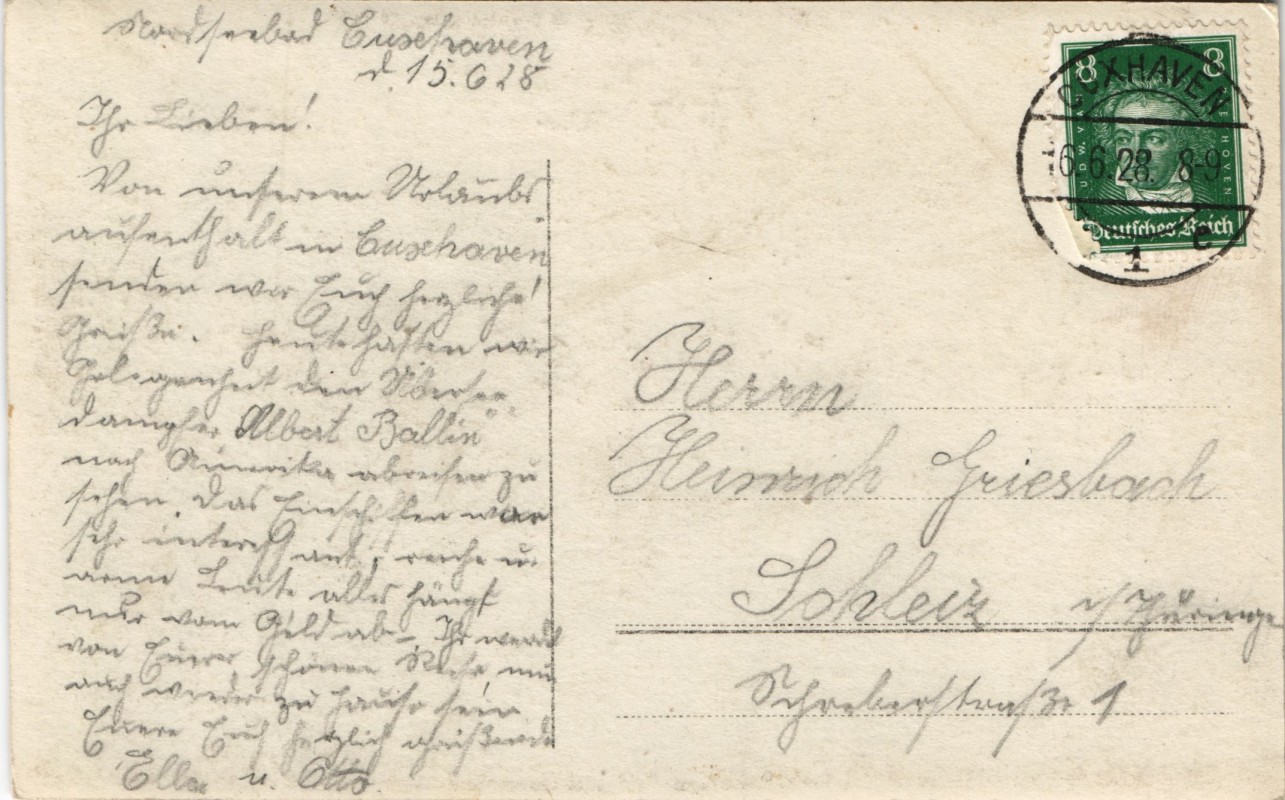 Nordseebad Cuxhaven
d. 15.6.28
Ihr Lieben!
Von unserem Urlaubs-
aufenthalt in Cuxhaven
senden wir Euch herzliche
Grüße. Heute hatten wir
Gelegenheit den Übersee-
dampfer Albert Ballin"
nach Amerika abreisen zu
sehen. Das Einschiffen war
sehr interessant, reiche u.
arme Leute alles hängt
nur vom Geld ab. Ihr werdet
von Eurer schönen Reise nun
auch wieder zu Hause sein
Euere Euch herzlich grüßende
Ella u. Otto.
8 8
LUDW. V. BEETHOVEN
Deutsches Reich
CUXHAVEN
16.6.28. 8-9
1 c
Herrn
Heinrich Griesbach
Schleiz i/Thüringen
Schreberstraße 1